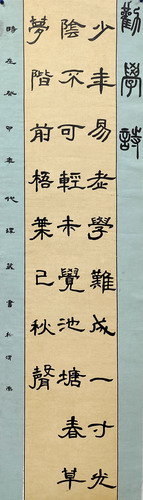 勸學詩
少年易老學難成一寸光
陰不可輕未覺池塘春草
夢階前梧葉已秋聲
時在癸甲
書